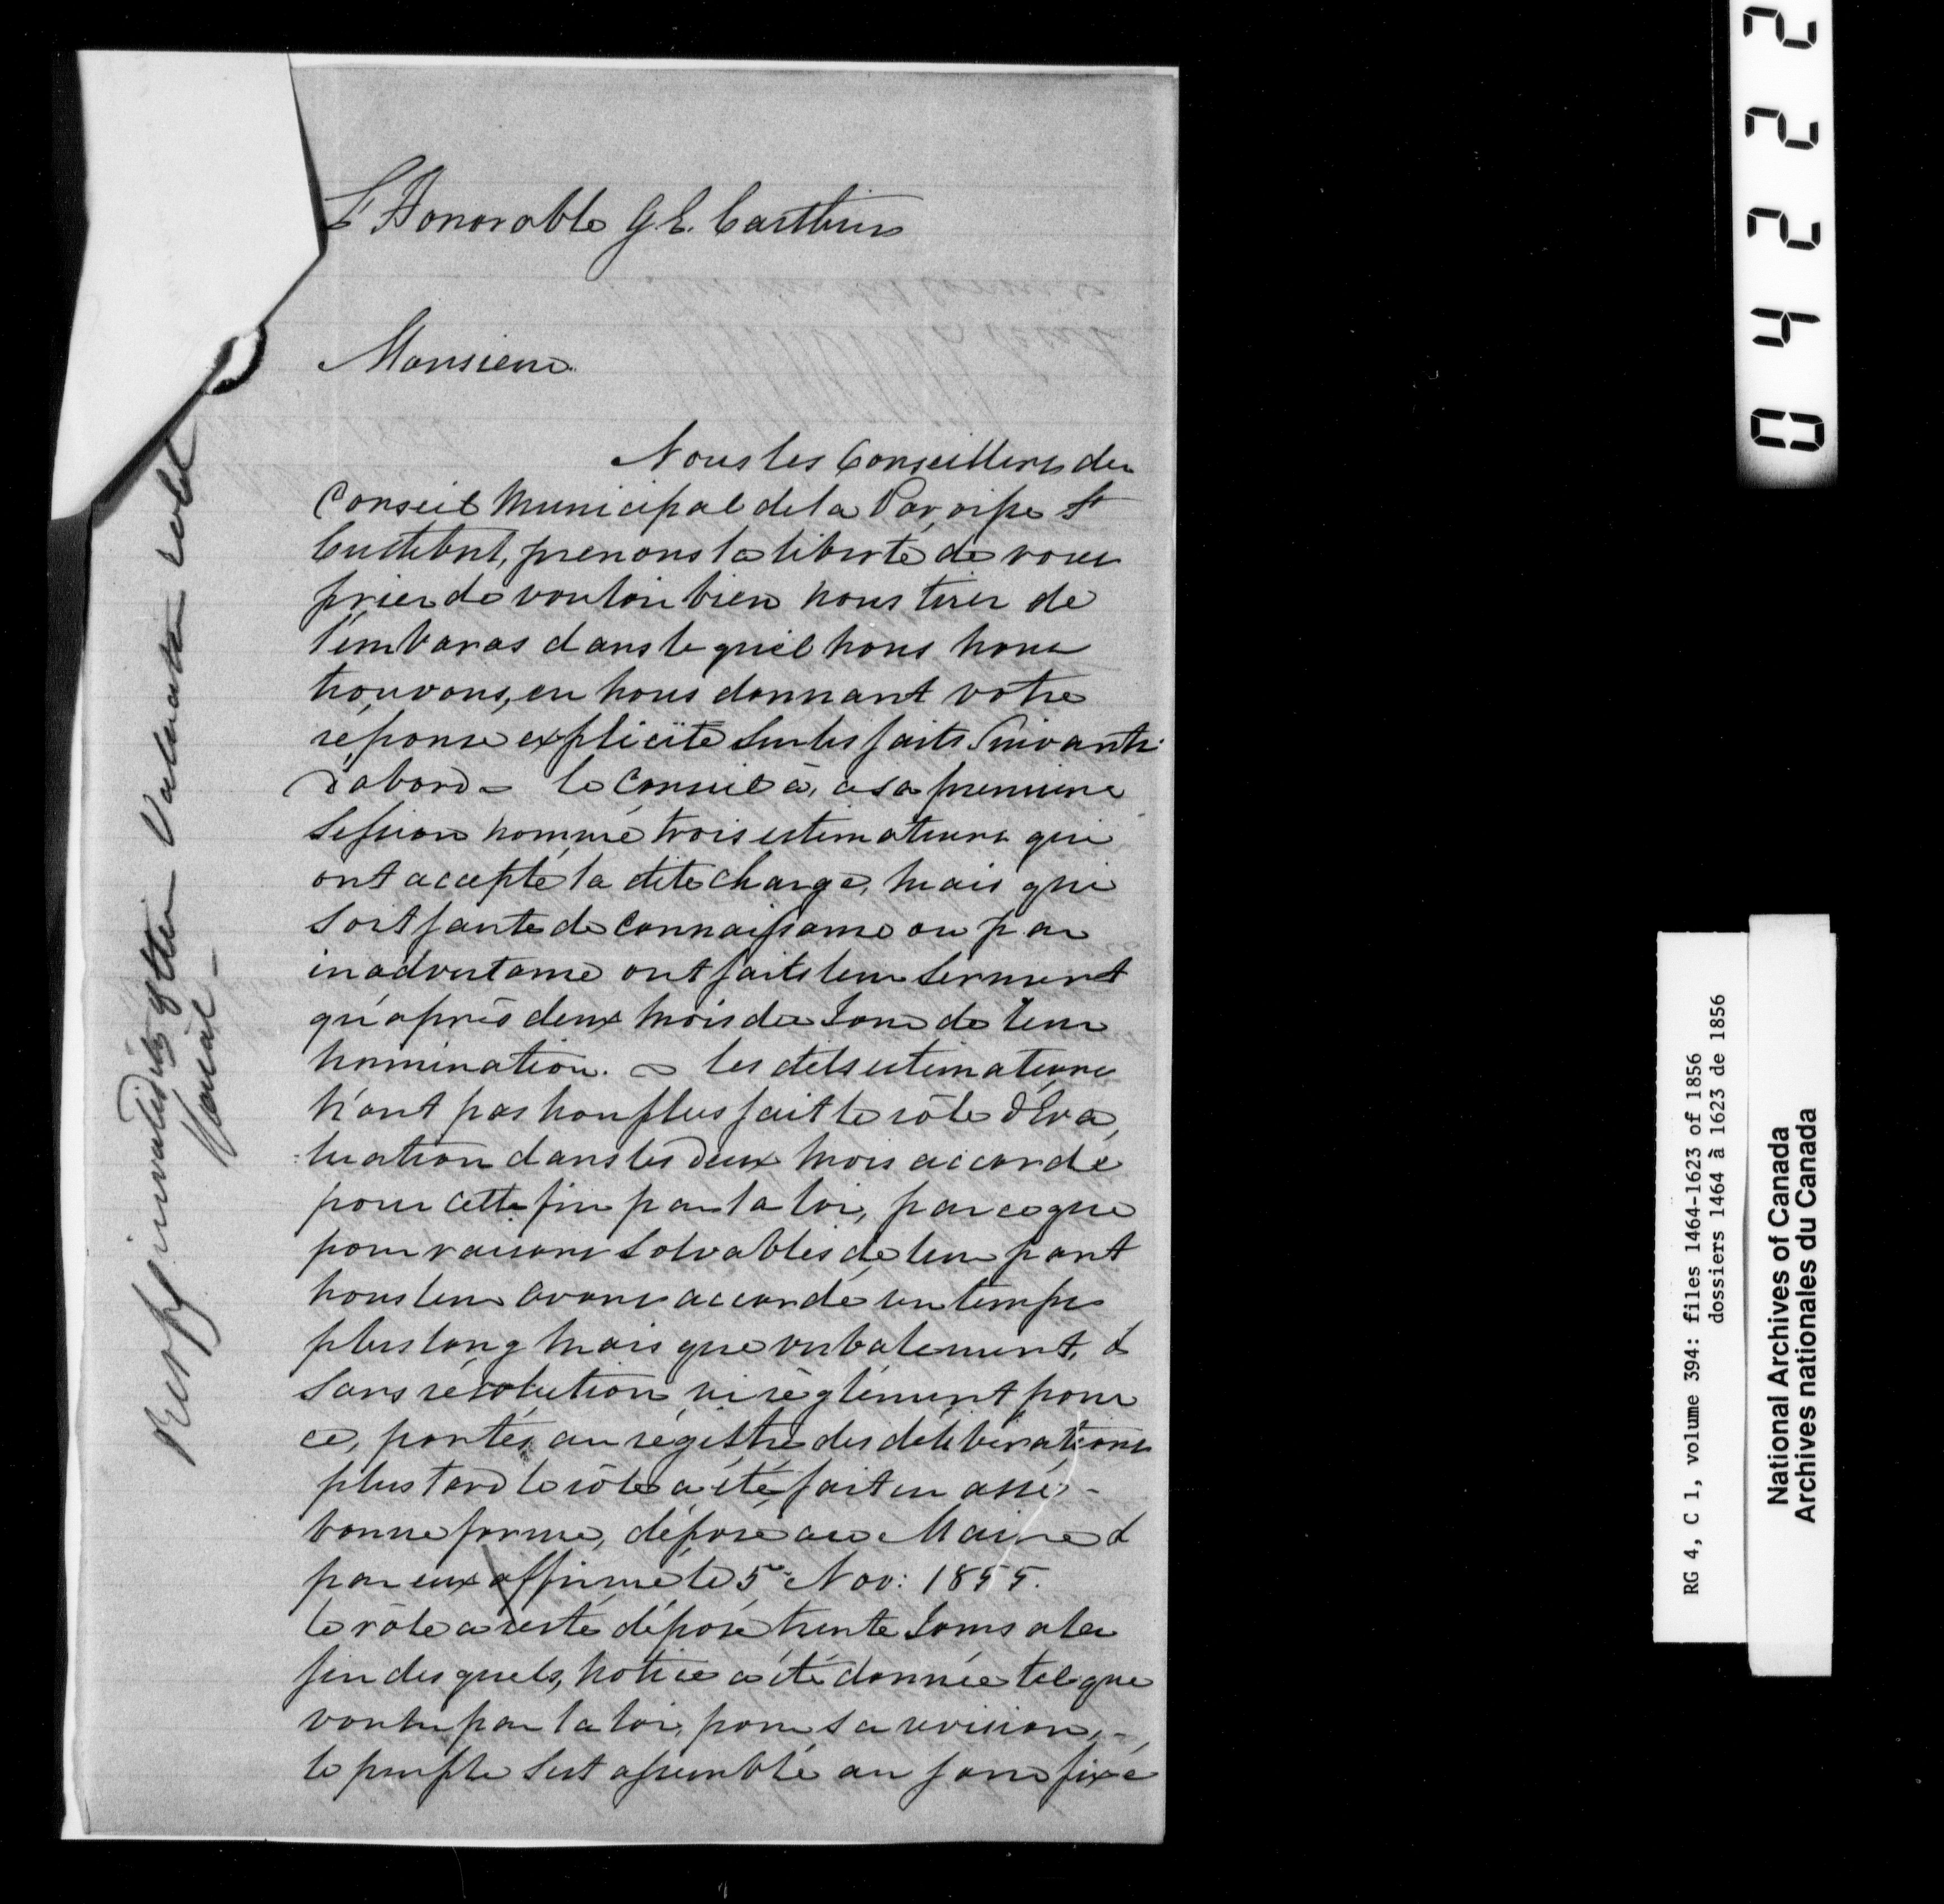 L'Honorable G. E. Carthier
Monsieur
Nous les Conseillers du
Conseil Municipal de la Paroisse St
Cuthbert, prenons la liberté de vous
prier de vouloir bien nous tirer de
l'embaras dans le quel nous nous
trouvons, en nous donnant votre
réponse explicite sur les faits suivants:
D'abord – le Conseil à, a sa premiere
session nommé trois estimateurs qui
ont accepté la dite charge, mais qui
soit faute de connaissance ou par
inadvertance ont faits leur serment
qu'après deux mois du Jour de leur
nomination. – les dits estimateurs
n'ont pas non plus fait le rôle d'Eva,
luation dans les deux mois accordé
pour cette fin par la loi, parceque
pour raisons solvables de leur part
nous leur avons accordé un temps
plus long mais que verbalement, &
sans résolution ni règlement pour
ce, portés au régistre des délibérations
plus tard le rôle a été fait en assé-
bonne forme, déposé au Maire &
par eux affirmé le 5 Nov: 1855.
le rôle a resté déposé trente Jours a la
fin des quels, notice a été donnée tel que
voulu par la loi, pour sa revision, –
le peuple s'est assemblé au jour fixé
Valuation roll
04222
RG 4, C 1, volume 394: files 1464-1623 of 1856
dossiers 1464 à 1623 de 1856
National Archives of Canada
Archives nationales du Canada